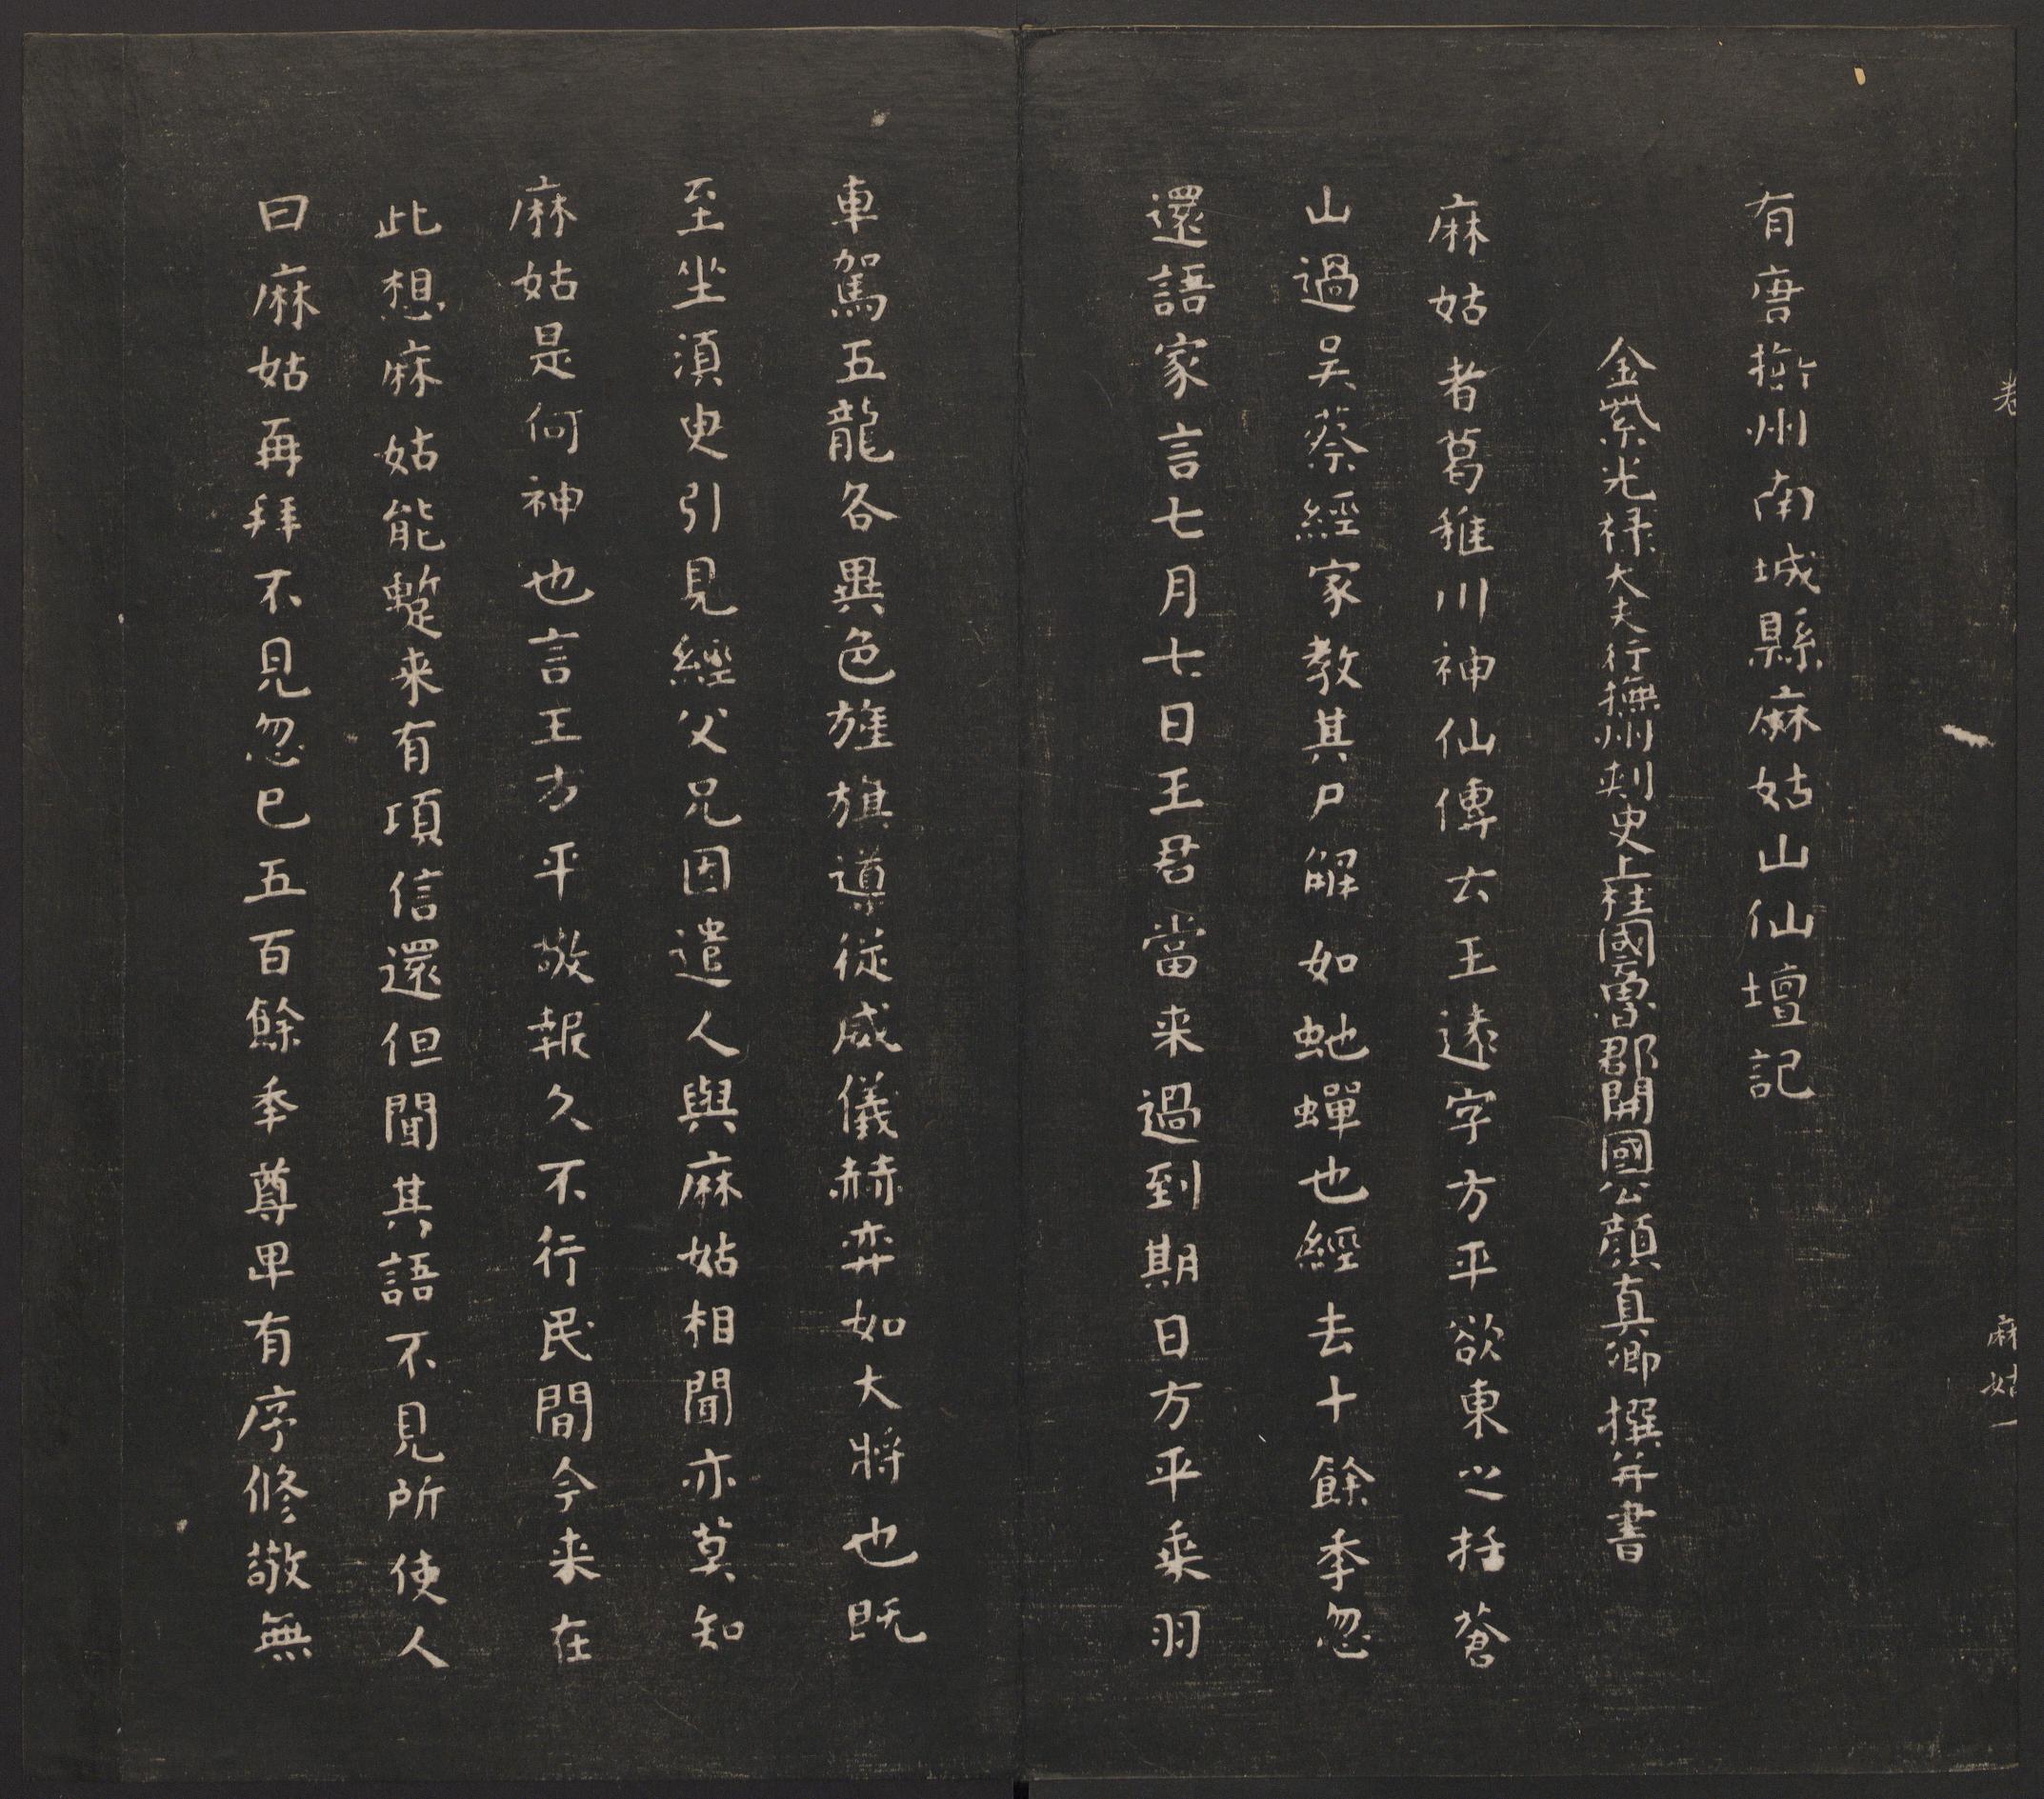 卷
麻姑一
有唐撫州南城縣麻姑山仙壇記
金紫光祿大夫行撫州刺史上柱國魯郡開國公顏真卿撰并書
麻姑者葛稚川神仙傳云王遠字方平欲東之括蒼
山過吳蔡經家教其尸解如虵蟬也經去十餘秊忽
還語家言七月七日王君當来過到期日方平乗羽
車駕五龍各異色旌旗導從威儀赫弈如大將也既
至坐須臾引見經父兄因遣人與麻姑相聞亦莫知
麻姑是何神也言王方平敬報久不行民間今来在
此想麻姑能蹔来有頃信還但聞其語不見所使人
曰麻姑再拜不見忽已五百餘秊尊卑有序修敬無